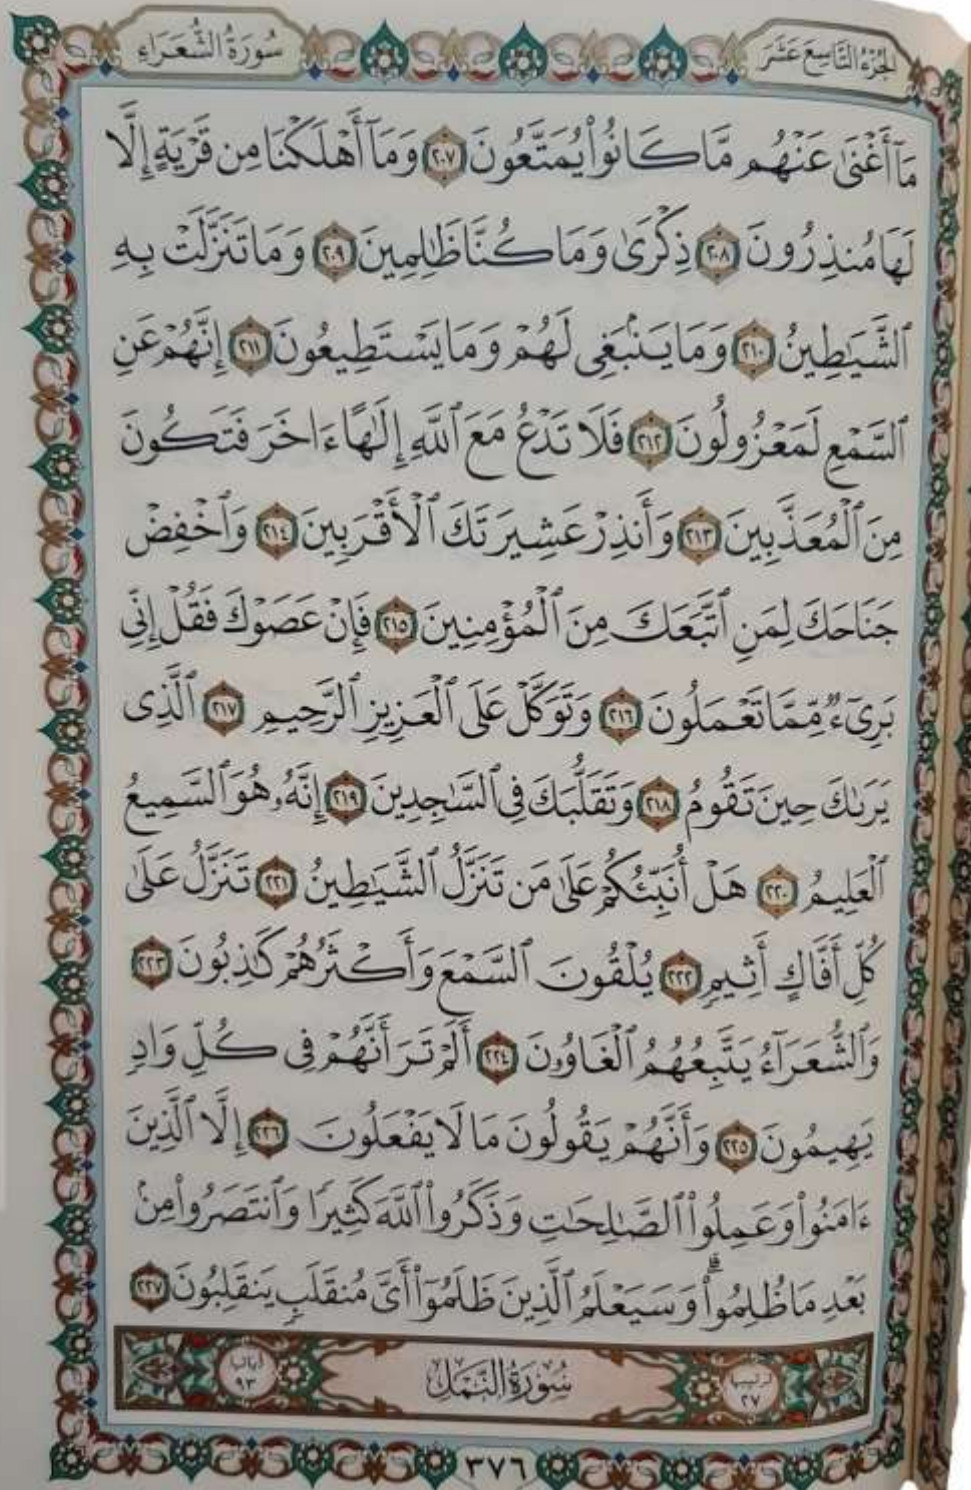 الجزء التاسع عشر
سورة الشعراء
مَآ أَغْنَىٰ عَنْهُم مَّا كَانُوا۟ يُمَتَّعُونَ ٢٠٧ وَمَآ أَهْلَكْنَا مِن قَرْيَةٍ إِلَّا
لَهَا مُنذِرُونَ ٢٠٨ ذِكْرَىٰ وَمَا كُنَّا ظَٰلِمِينَ ٢٠٩ وَمَا تَنَزَّلَتْ بِهِ
ٱلشَّيَٰطِينُ ٢١٠ وَمَا يَنۢبَغِى لَهُمْ وَمَا يَسْتَطِيعُونَ ٢١١ إِنَّهُمْ عَنِ
ٱلسَّمْعِ لَمَعْزُولُونَ ٢١٢ فَلَا تَدْعُ مَعَ ٱللَّهِ إِلَٰهًا ءَاخَرَ فَتَكُونَ
مِنَ ٱلْمُعَذَّبِينَ ٢١٣ وَأَنذِرْ عَشِيرَتَكَ ٱلْأَقْرَبِينَ ٢١٤ وَٱخْفِضْ
جَنَاحَكَ لِمَنِ ٱتَّبَعَكَ مِنَ ٱلْمُؤْمِنِينَ ٢١٥ فَإِنْ عَصَوْكَ فَقُلْ إِنِّى
بَرِىٓءٌ مِّمَّا تَعْمَلُونَ ٢١٦ وَتَوَكَّلْ عَلَى ٱلْعَزِيزِ ٱلرَّحِيمِ ٢١٧ ٱلَّذِى
يَرَىٰكَ حِينَ تَقُومُ ٢١٨ وَتَقَلُّبَكَ فِى ٱلسَّٰجِدِينَ ٢١٩ إِنَّهُۥ هُوَ ٱلسَّمِيعُ
ٱلْعَلِيمُ ٢٢٠ هَلْ أُنَبِّئُكُمْ عَلَىٰ مَن تَنَزَّلُ ٱلشَّيَٰطِينُ ٢٢١ تَنَزَّلُ عَلَىٰ
كُلِّ أَفَّاكٍ أَثِيمٍ ٢٢٢ يُلْقُونَ ٱلسَّمْعَ وَأَكْثَرُهُمْ كَٰذِبُونَ ٢٢٣
وَٱلشُّعَرَآءُ يَتَّبِعُهُمُ ٱلْغَاوُۥنَ ٢٢٤ أَلَمْ تَرَ أَنَّهُمْ فِى كُلِّ وَادٍ
يَهِيمُونَ ٢٢٥ وَأَنَّهُمْ يَقُولُونَ مَا لَا يَفْعَلُونَ ٢٢٦ إِلَّا ٱلَّذِينَ
ءَامَنُوا۟ وَعَمِلُوا۟ ٱلصَّٰلِحَٰتِ وَذَكَرُوا۟ ٱللَّهَ كَثِيرًا وَٱنتَصَرُوا۟ مِنۢ
بَعْدِ مَا ظُلِمُوا۟ ۗ وَسَيَعْلَمُ ٱلَّذِينَ ظَلَمُوٓا۟ أَىَّ مُنقَلَبٍ يَنقَلِبُونَ ٢٢٧
ترتيبها ٢٧ سورة النمل آياتها ٩٣
٣٧٦